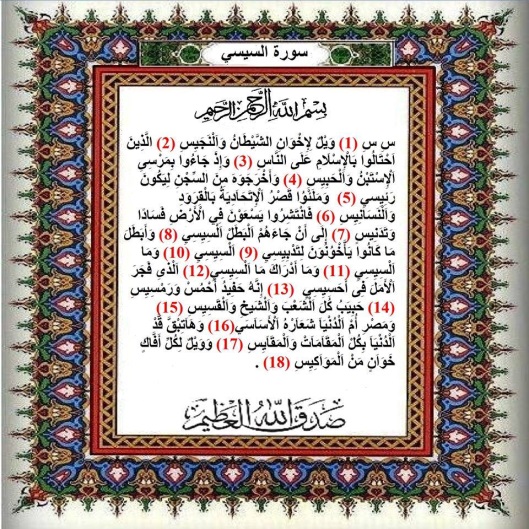 سورة السيسي
بسم الله الرحمن الرحيم
س س (1) وَيْلٌ لِإخْوَانِ الشَّيْطَانُ وَالْنَجَيسِ (2) الَّذِينَ
احْتَالُوا بَالْإِسْلَامِ عَلَى النَّاسِ (3) وَإِذْ جَاءُوا بِمَرْسِى
الْإِسْتَبْنُ وَالْحَبِيسِ (4) وَأَخْرَجَوهَ مِنَ السِّجْنِ لِيَكُونَ
رَئِيسِي (5) وَمَلَئَوْا قَصْرُ الْاِتحَادِيَةَ بِالْقرَودِ
وَالْنَسَانِيسِ (6) فَانْتَشَرُوا يَسْعَوْنَ فِي الْأَرْضِ فَسَادًا
وَتَدْنِيسِ (7) إِلَى أَنْ جَاءَهُمْ الْبَطَلُ السِيسِي (8) وَأَبْطَلَ
مَا كَانُوا يَأخْوُنُونَ لِتَدْبِيسِي (9) السِيسِي (10) وَمَا
السِيسِي (11) وَمَا أَدْرَاكَ مَا السِيسِي(12) الَّذِي فَجَرَ
الْأَمَلَ فِى أَحَسِيسِي (13) إِنَّهُ حَفِيدُ أَحْمُسُ وَرَمْسِيسِ
(14) حَبِيبُ كُلَّ الْشَعْبَ وَالْشَيخَ وَالْقَسِيسِ (15)
وَمَصْرِ أَمُ الْدُنْيَا شَعَارُهُ الْأَسَاسَي(16) وَهَاتِبْقَّ قَدْ
الْدُنْيَا بِكُلِّ الْمَقَامَاتُ وَالْمَقَايِسِ (17) وَوَيْلٌ لِكُلِّ أَفَّاكٍ
خَوَانِ مَنْ الْمَوَاكِيسِ (18) .
صدق الله العظيم